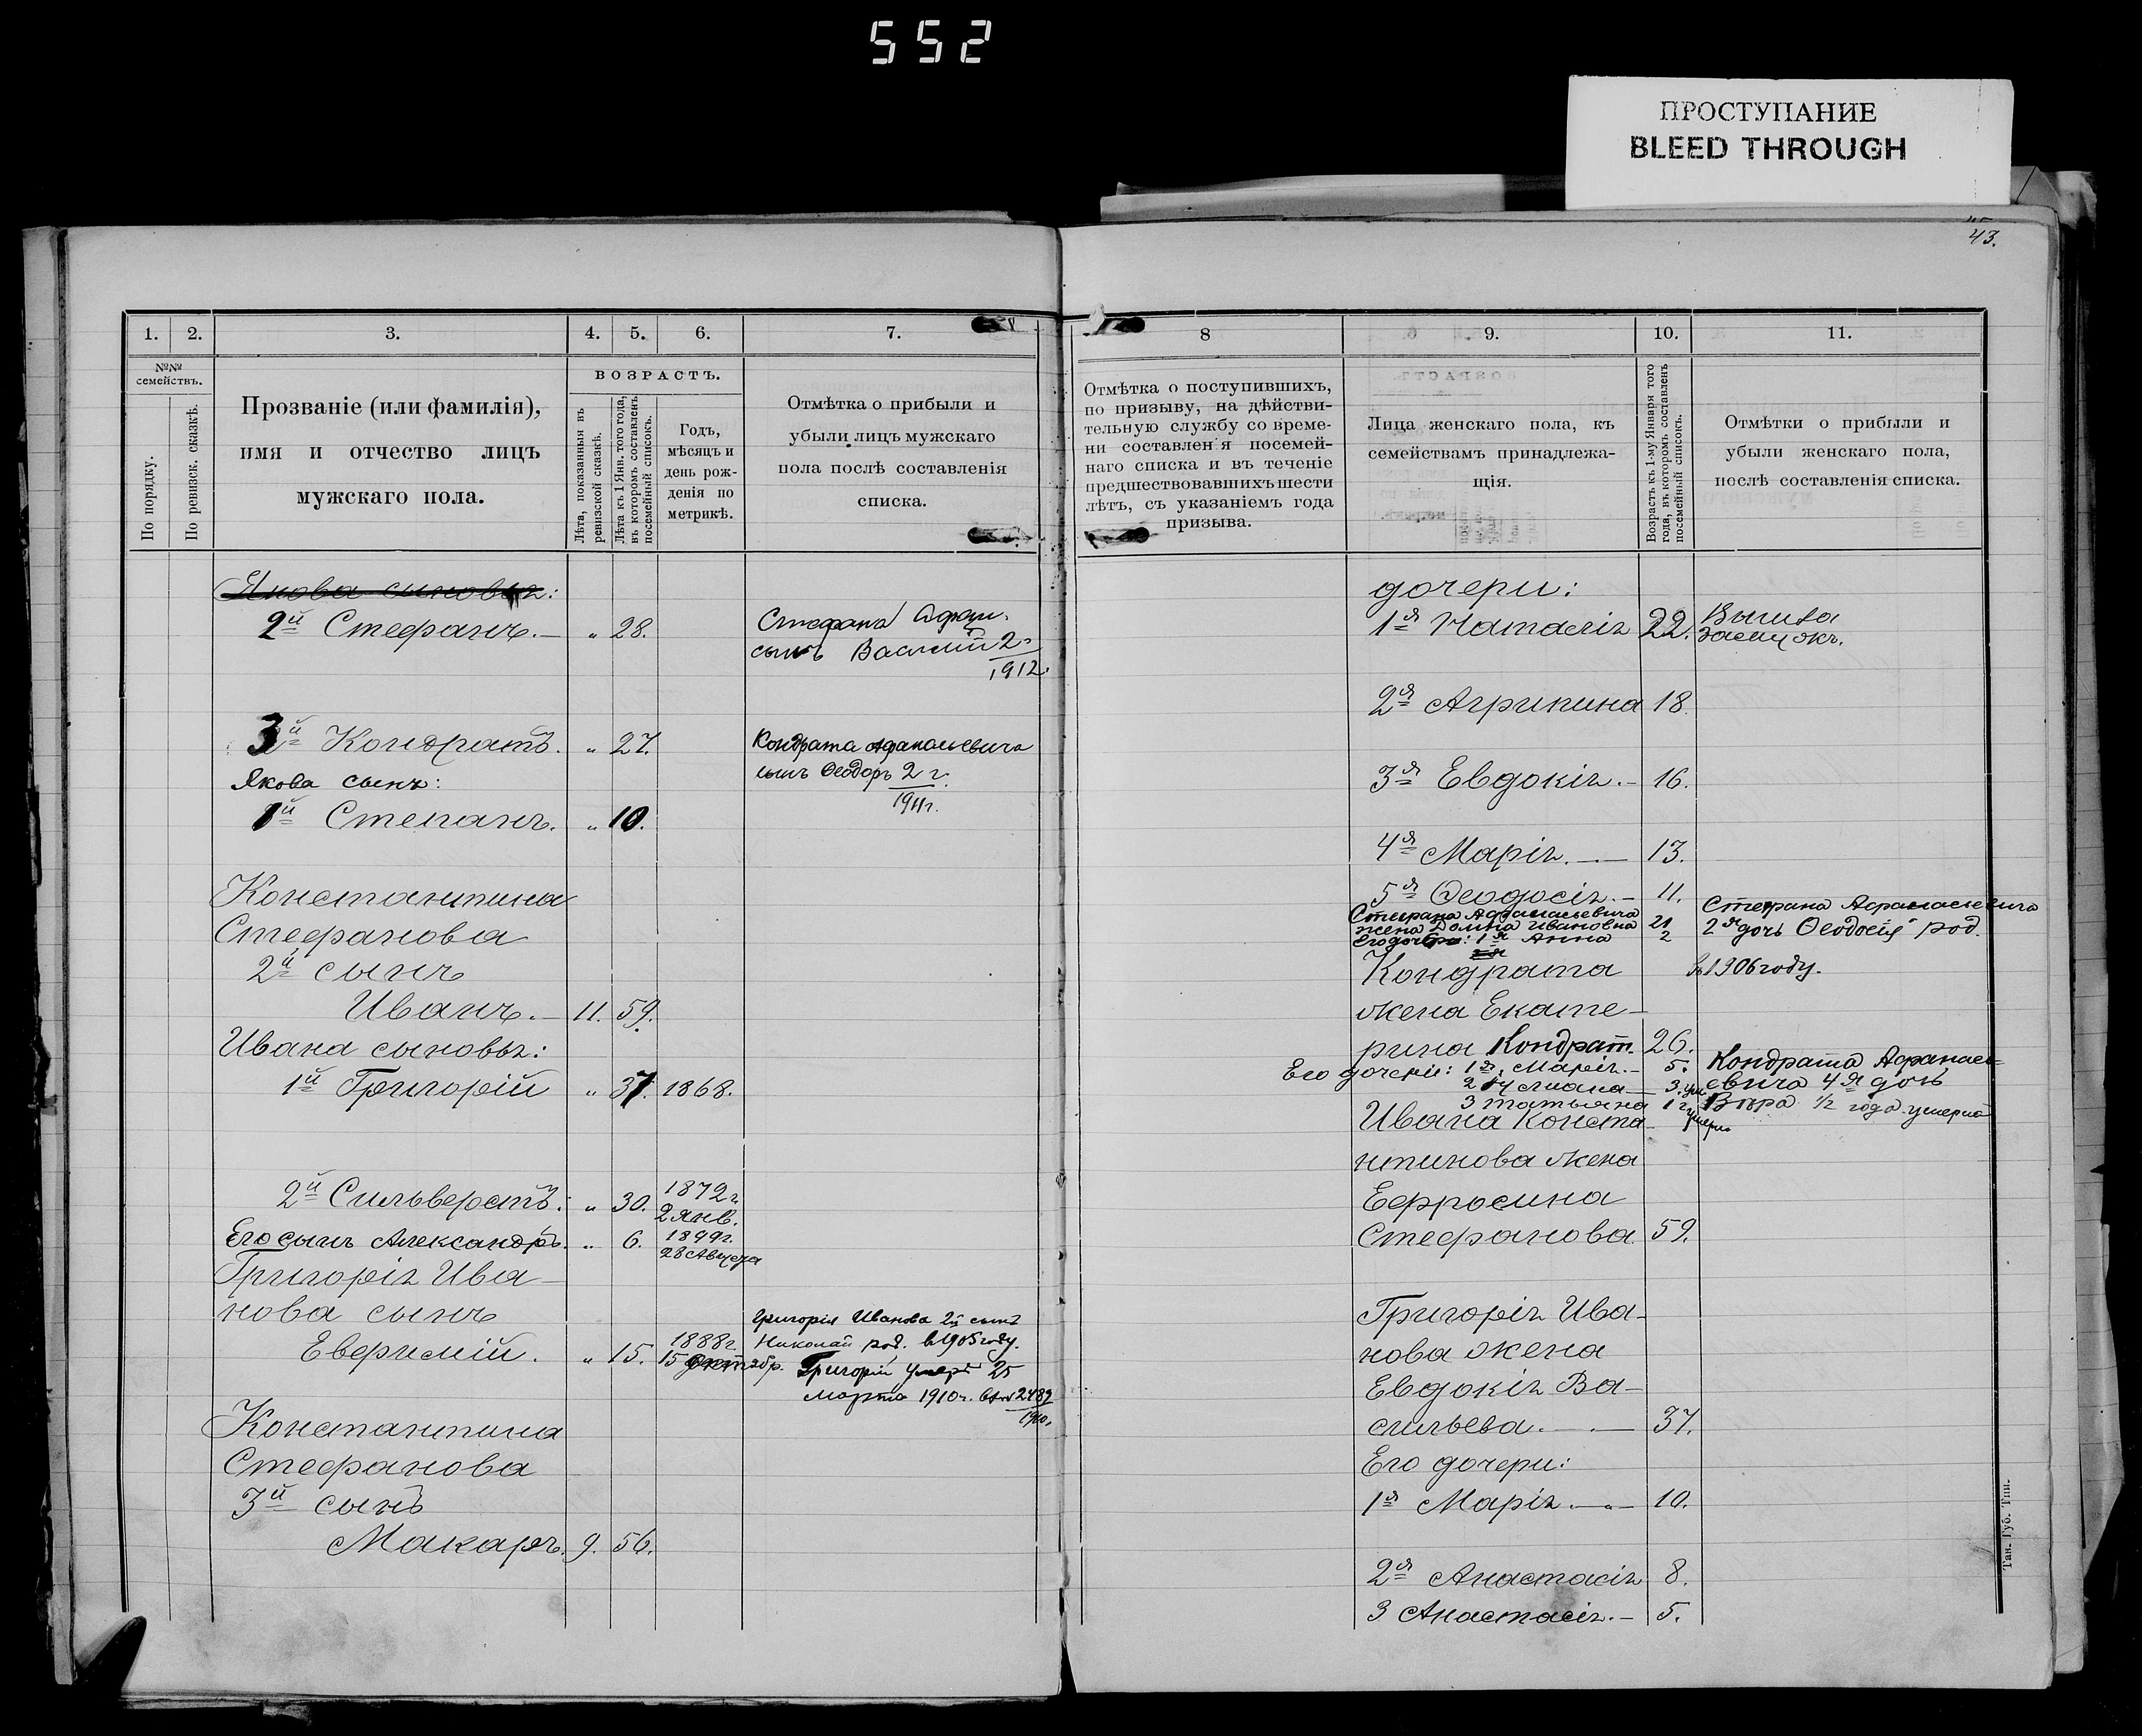 552
ПРОСТУПАНИЕ
BLEED THROUGH
43.
1.
2.
3.
4.
5.
6.
7.
№№ семействъ.
По порядку.
По ревизск. сказкѣ.
Прозваніе (или фамилія),
имя и отчество лицъ
мужскаго пола.
ВОЗРАСТЪ.
Лѣта, показанныя въ
ревизской сказкѣ.
Лѣта къ 1 Янв. того года,
въ которомъ составленъ
посемейный списокъ.
Годъ,
мѣсяцъ и
день рож-
денія по
метрикѣ.
Отмѣтка о прибыли и
убыли лицъ мужскаго
пола послѣ составленія
списка.
Якова сыновья:
2й Стефанъ. — „ 28.
Стефана
сынъ Василій 2
1912.
3й Кондратъ. „ 27.
Кондрата Афанасьевича
сынъ Ѳеодоръ 2 г.
1911г.
Якова сынъ:
1й Степанъ. „ 10.
Константина
Стефанова
2й сынъ
Иванъ. — 11. 59.
Ивана сыновья:
1й Григорій „ 37. 1868.
2й Сильверстъ. „ 30. 1872г
2 янв.
Его сынъ Александръ. „ 6. 1899г.
28 Августа
Григорія Ива-
нова сынъ
Григорія Иванова 2й сынъ
Евфимій. „ 15. 1888г.
15 октябр.
Николай род. въ 1905 году.
Григорій умеръ 25
Марта 1910г. 2489
1910.
Константина
Стефанова
3й сынъ
Макаръ. 9. 56.
8
9.
10.
11.
Отмѣтка о поступившихъ,
по призыву, на дѣйстви-
тельную службу со време-
ни составленія посемей-
наго списка и въ теченіе
предшествовавшихъ шести
лѣтъ, съ указаніемъ года
призыва.
Лица женскаго пола, къ
семействамъ принадлежа-
щія.
Возрастъ къ 1-му Января того
года, въ которомъ составленъ
посемейный списокъ.
Отмѣтки о прибыли и
убыли женскаго пола,
послѣ составленія списка.
дочери:
1я Наталія 22. Вышла
2я Агрипина 18.
3я Евдокія. — 16.
4я Марія. — 13.
5я Ѳеодосія. — 11.
Стефана Афанасьевича
жена Домна Ивановна 21
его дочь: 1я Анна 2
Стефана Афанасьевича
2я дочь Ѳеодосія род.
въ 1906 году.
Кондрата
жена Екате-
рина Кондрат. 26.
Его дочери: 1я Марія. — 5.
2 — 3. ум
3 Татьяна 1 г умерла
Кондрата Афанась-
евича 4я дочь
Вѣра 1/2 года умерла
Ивана Конста-
нтинова жена
Ефросина
Стефанова 59.
Григорія Ива-
нова жена
Евдокія Ва-
сильева. — 37.
Его дочери:
1я Марія. — 10.
2я Анастасія 8.
3 Анастасія. — 5.
Тан. Губ. Тип.